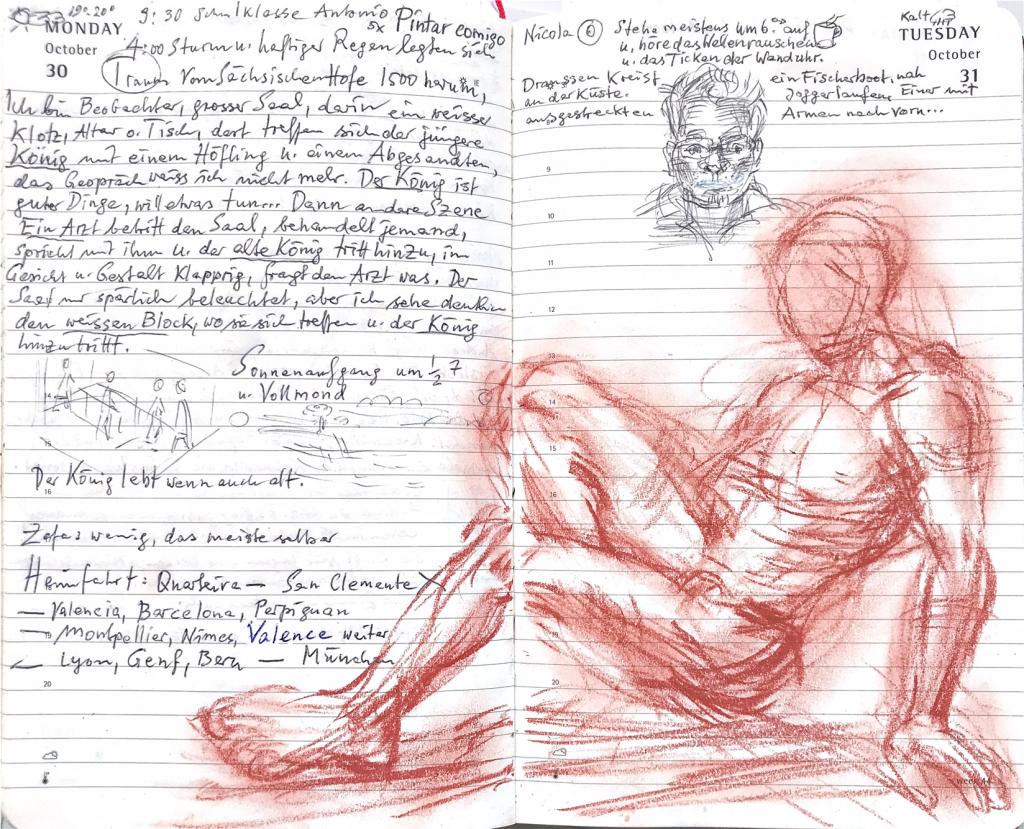 19°-20°
MONDAY
October
30
9:30 Schulklasse Antonio 5x Pintar comigo
4:00 Sturm u. heftiger Regen legten sich
Traum vom Sächsischen Hofe 1500 harum,
Ich bin Beobachter, grosser Saal, darin ein weisser
Klotz, Altar o. Tisch, dort treffen sich der jüngere
König mit einem Höfling u. einem Abgesandten,
das Gespräch weiss ich nicht mehr. Der König ist
guter Dinge, will etwas tun... Dann andere Szene
Ein Arzt betritt den Saal, behandelt jemand,
spricht mit ihm u. der alte König tritt hinzu, im
Gesicht u. Gestalt klapprig, fragt den Arzt was. Der
Saal nur spärlich beleuchtet, aber ich sehe
den weissen Block, wo sie sich treffen u. der König
hinzutritt.
Sonnenaufgang um 1/2 7
u. Vollmond
14
15
Der König lebt wenn auch alt.
16
wenig, das meiste selber
Heimfahrt: Quarteira — San Clemente
— Valencia, Barcelona, Perpignan
— Montpellier, Nimes, Valence weiter
— Lyon, Genf, Bern — München
20
Nicola 6 Stehe meistens um 6.00 auf
u. höre das Wellenrauschen
u. das Ticken der Wanduhr.
Kalt
TUESDAY
October
31
Draussen kreist ein Fischerboot, nah
an der Küste. Jogger laufen, Einer mit
ausgestreckten Armen nach vorn...
9
10
11
12
13
14
15
16
20